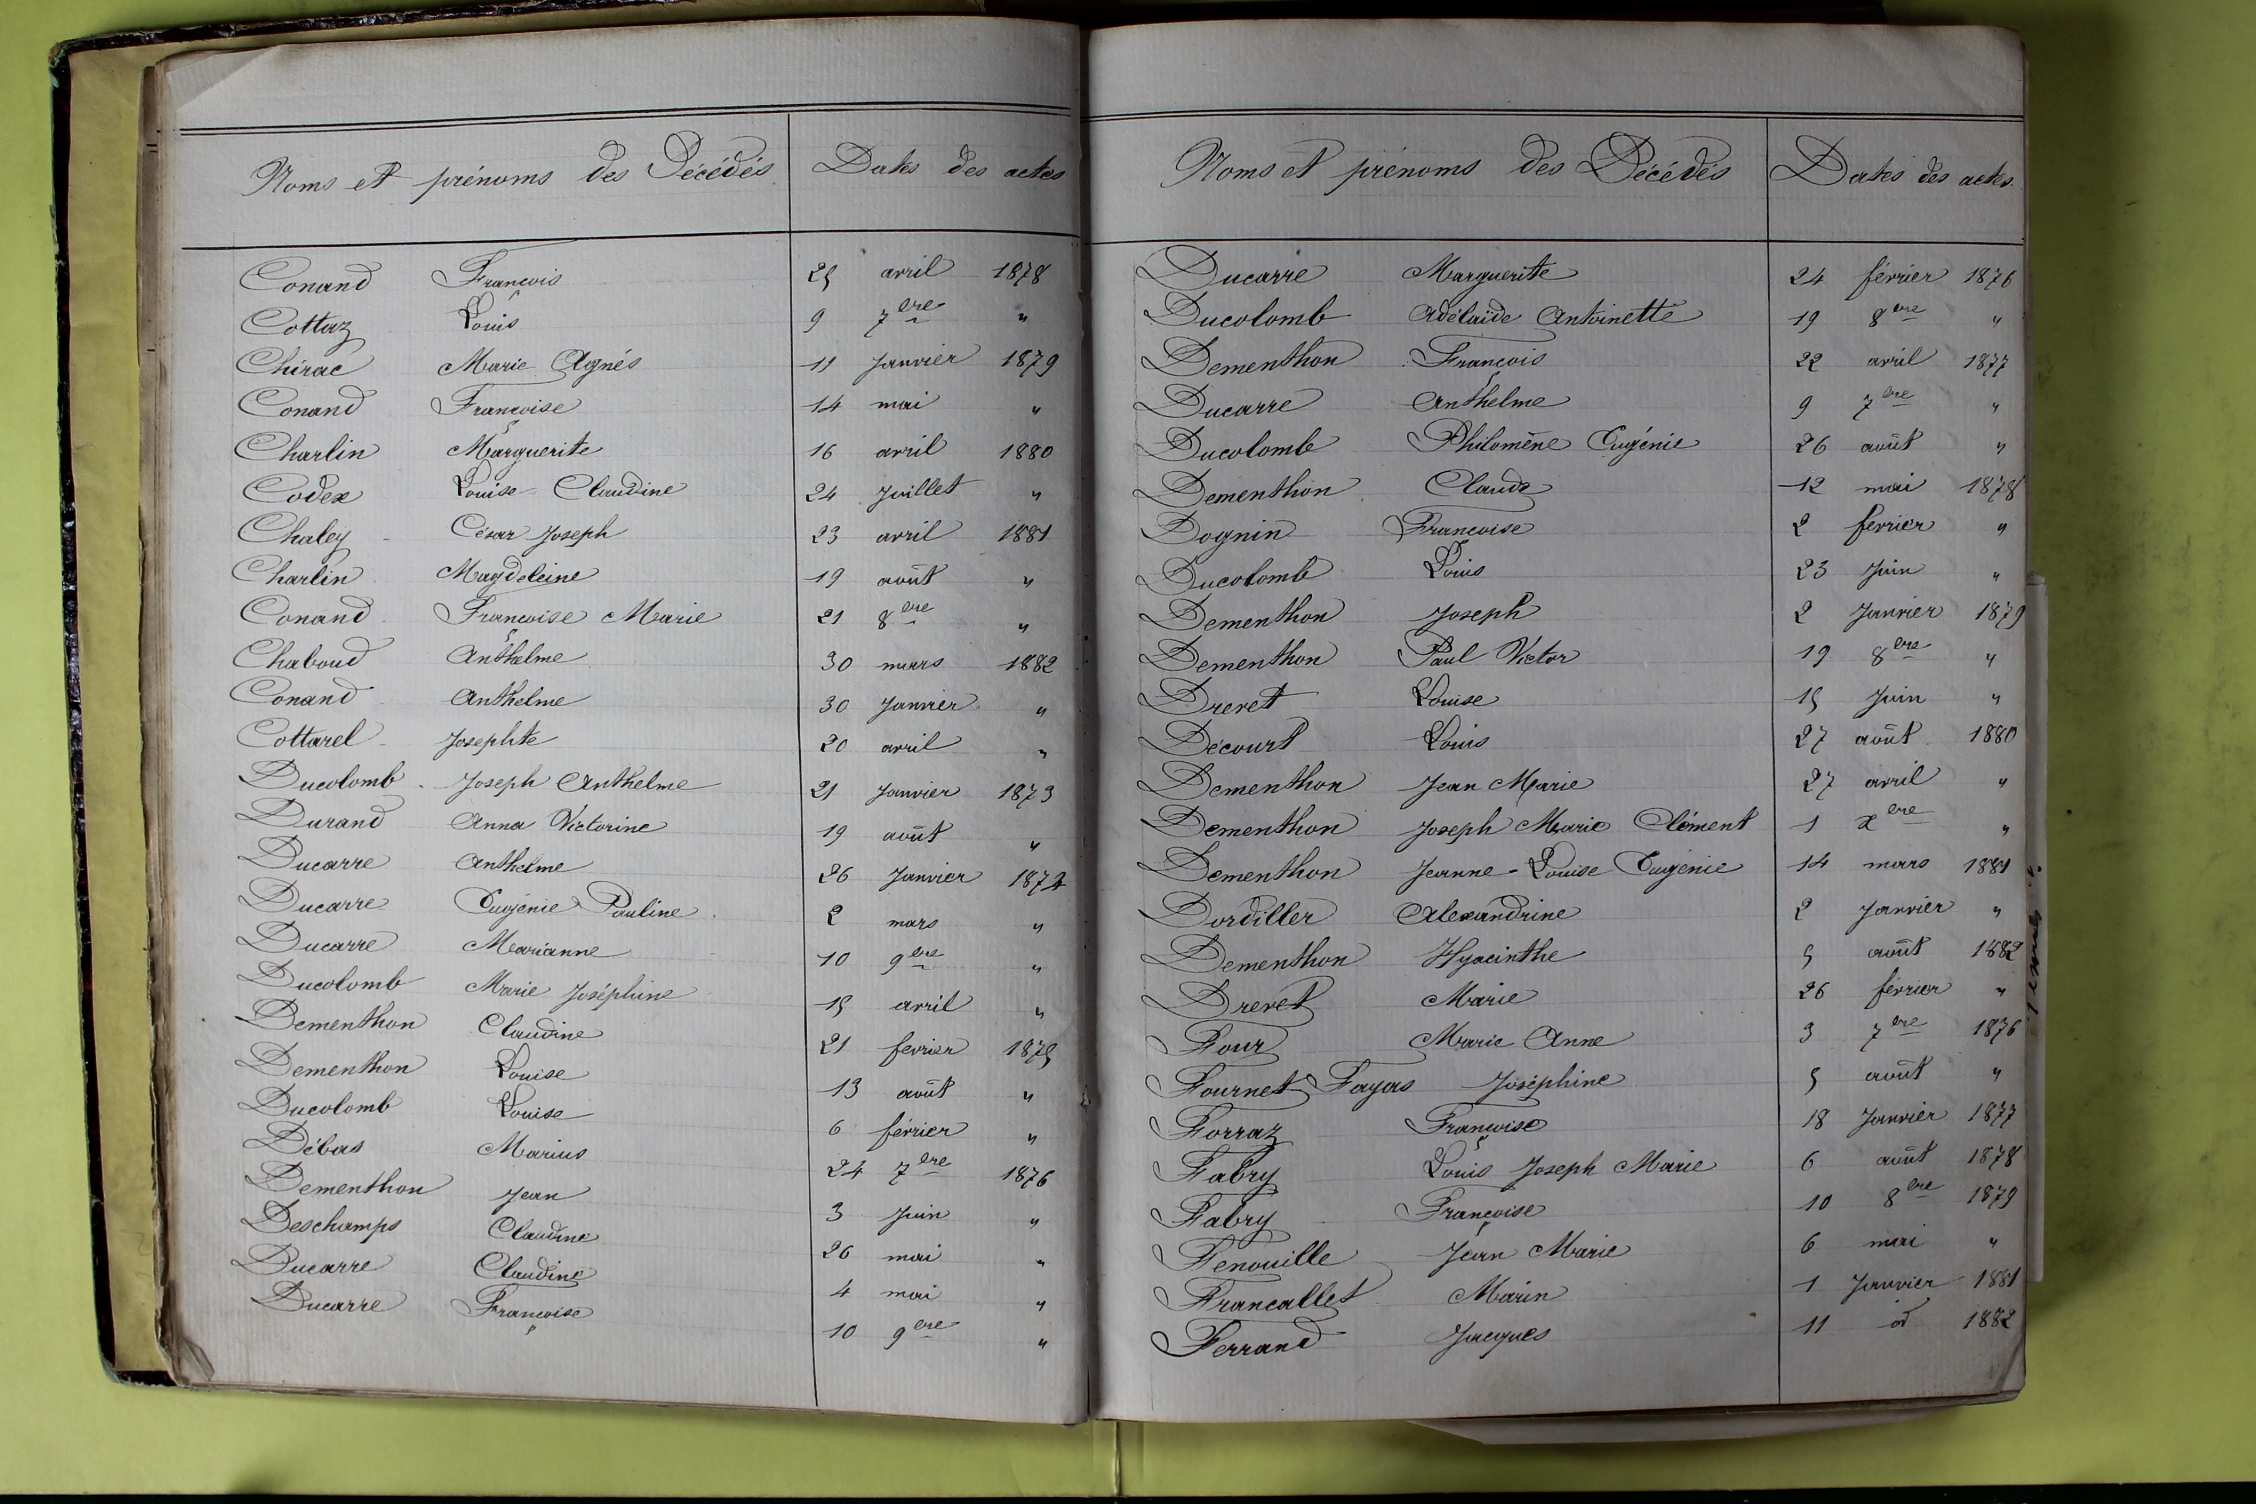 Noms et prénoms des Décédés Dates des actes
Conand François 25 avril 1878
Cottaz Louis 9 7bre "
Chirac Marie Agnés 11 Janvier 1879
Conand Françoise 14 mai "
Charlin Marguerite 16 avril 1880
Codex Louise Claudine 24 Juillet "
Chaley César Joseph 23 avril 1881
Charlin Magdeleine 19 août "
Conand Françoise Marie 21 8bre "
Chaboud Anthelme 30 mars 1882
Conand Anthelme 30 Janvier "
Cottarel Josephte 20 avril "
Ducolomb Joseph Anthelme 21 Janvier 1873
Durand Anna Victorine 19 août "
Ducarre Anthelme 26 Janvier 1874
Ducarre Eugénie Pauline 2 mars "
Ducarre Marianne 10 9bre "
Ducolomb Marie Joséphine 15 avril "
Dementhon Claudine 21 fevrier 1875
Dementhon Louise 13 août "
Ducolomb Louise 6 février "
Débas Marius 24 7bre 1876
Dementhon Jean 3 Juin "
Deschamps Claudine 26 mai "
Ducarre Claudine 4 mai "
Ducarre Françoise 10 9bre "
Noms et prénoms des Décédés Dates des actes
Ducarre Marguerite 24 février 1876
Ducolomb Adélaïde Antoinette 19 8bre "
Dementhon François 22 avril 1877
Ducarre Anthelme 9 7bre "
Ducolomb Philomène Eugénie 26 août "
Dementhon Claude 12 mai 1878
Dognin Francoise 2 fevrier "
Ducolomb Louis 23 Juin "
Dementhon Joseph 2 Janvier 1879
Dementhon Paul Victor 19 8bre "
Drevet Louise 15 Juin "
Décourt Louis 27 août 1880
Dementhon Jean Marie 27 avril "
Dementhon Joseph Marie Clément 1 xbre "
Dementhon Jeanne-Louise Eugénie 14 mars 1881
Dordiller Alexandrine 2 Janvier "
Dementhon Hyacinthe 5 août 1882
Drevet Marie 26 février "
Four Marie Anne 3 7bre 1876
Fournet Fayas Joséphine 5 août "
Forraz Françoise 18 Janvier 1877
Fabry Louis Joseph Marie 6 août 1878
Fabry Françoise 10 8bre 1879
Fenouille Jean Marie 6 mai "
Francallet Marin 1 Janvier 1881
Ferrand Jacques 11 id 1882